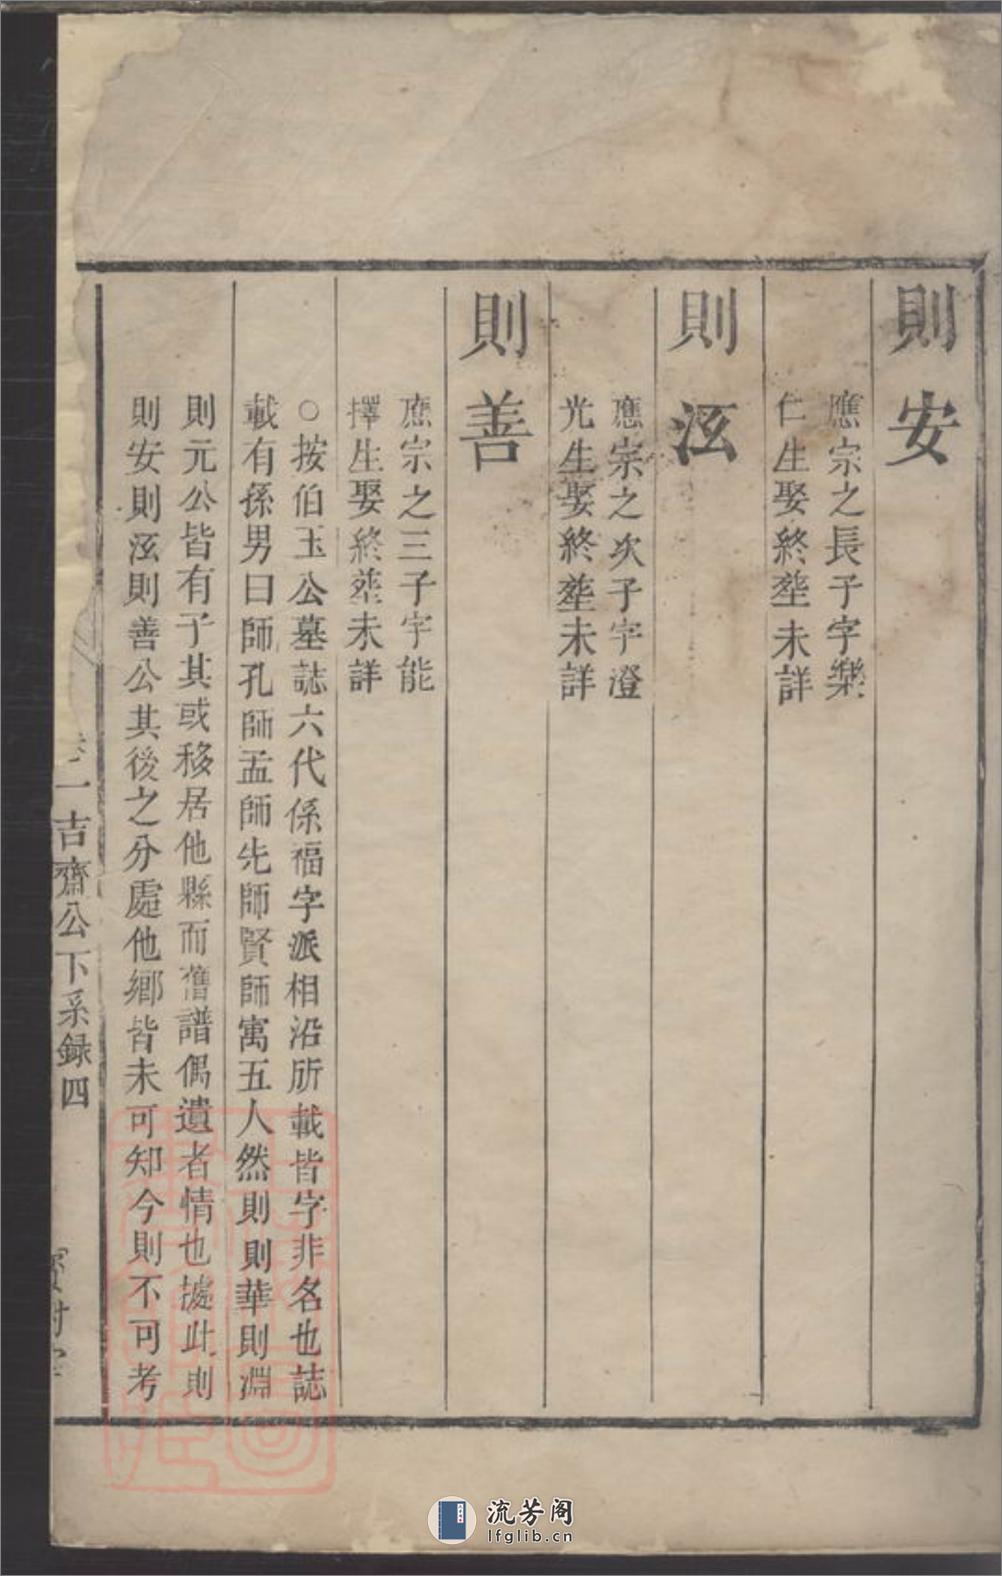 則安
應宗之長子字樂
仁生娶終塟未詳
則泫
應宗之次子字澄
光生娶終塟未詳
則善
應宗之三子字能
擇生娶終塟未詳
○按伯玉公墓誌六代係福字派相沿所載皆字非名也誌
載有孫男曰師孔師孟師先師賢師寓五人然則則華則淵
則元公皆有子其或移居他縣而舊譜偶遺者情也據此則
則安則泫則善公其後之分處他鄉皆未可知今則不可考
一吉齋公下系録四
流芳阁
lfglib.cn